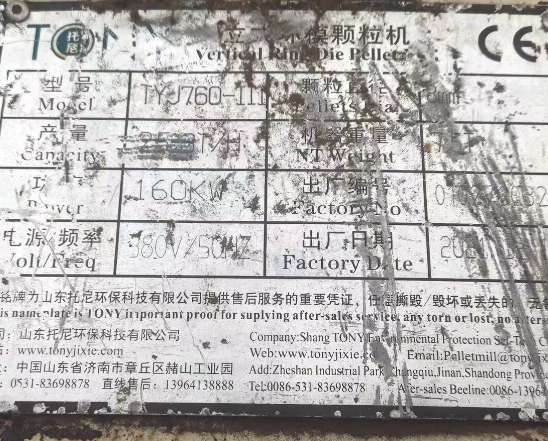 TONY 托尼 立式环模颗粒机 CE
Vertical Ring Die Pelletz
型号 TYJ760-III 颗粒直径 mm
Model Pellets Dia
产量 T/H 机器重量
Capacity NT Weight
功 160KW 出厂编号
Power Factory No
电源/频率 380V/50HZ 出厂日期
Volt/Freq Factory Date
铭牌为山东托尼环保科技有限公司提供售后服务的重要凭证，任意撕毁/毁坏或丢失的，
is nameplate is TONY important proof for suplying after-sales service, any torn or lost, no
司: 山东托尼环保科技有限公司 Company:Shang TONY Environmental Protection
www.tonyjixie.com Web:www.tonyjixie.com Email:Pelletmill@tonyjix
: 中国山东省济南市章丘区赭山工业园 Add:Zheshan Industrial Park Zhangqiu,Jinan,Shandong Provin
: 0531-83698878 直线售后: 13964138888 Tel:0086-531-83698878 After-sales Beeline:0086-1396